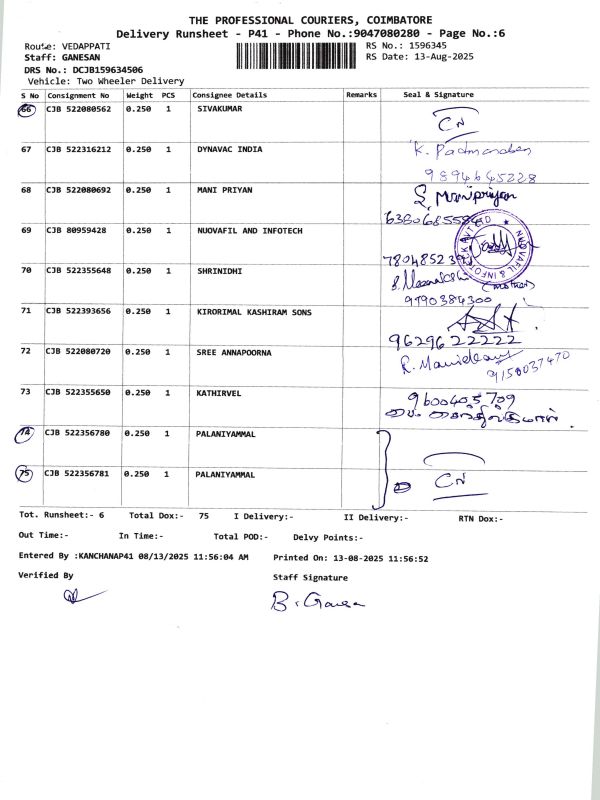 THE PROFESSIONAL COURIERS, COIMBATORE
Delivery Runsheet - P41 - Phone No.:9047080280 - Page No.:6
Route: VEDAPPATI
RS No.: 1596345
Staff: GANESAN
RS Date: 13-Aug-2025
DRS No.: DCJB159634506
Vehicle: Two Wheeler Delivery
S No Consignment No Weight PCS Consignee Details Remarks Seal & Signature
66 CJB 522080562 0.250 1 SIVAKUMAR CN
67 CJB 522316212 0.250 1 DYNAVAC INDIA K. Padmanaben
9894645228
68 CJB 522080692 0.250 1 MANI PRIYAN S. Manipriyan
69 CJB 80959428 0.250 1 NUOVAFIL AND INFOTECH
70 CJB 522355648 0.250 1 SHRINIDHI
9190384300
71 CJB 522393656 0.250 1 KIRORIMAL KASHIRAM SONS
9629622222
72 CJB 522080720 0.250 1 SREE ANNAPOORNA
9150037470
73 CJB 522355650 0.250 1 KATHIRVEL 9600405709
74 CJB 522356780 0.250 1 PALANIYAMMAL
75 CJB 522356781 0.250 1 PALANIYAMMAL CN
Tot. Runsheet:- 6 Total Dox:- 75 I Delivery:- II Delivery:- RTN Dox:-
Out Time:- In Time:- Total POD:- Delvy Points:-
Entered By :KANCHANAP41 08/13/2025 11:56:04 AM Printed On: 13-08-2025 11:56:52
Verified By Staff Signature